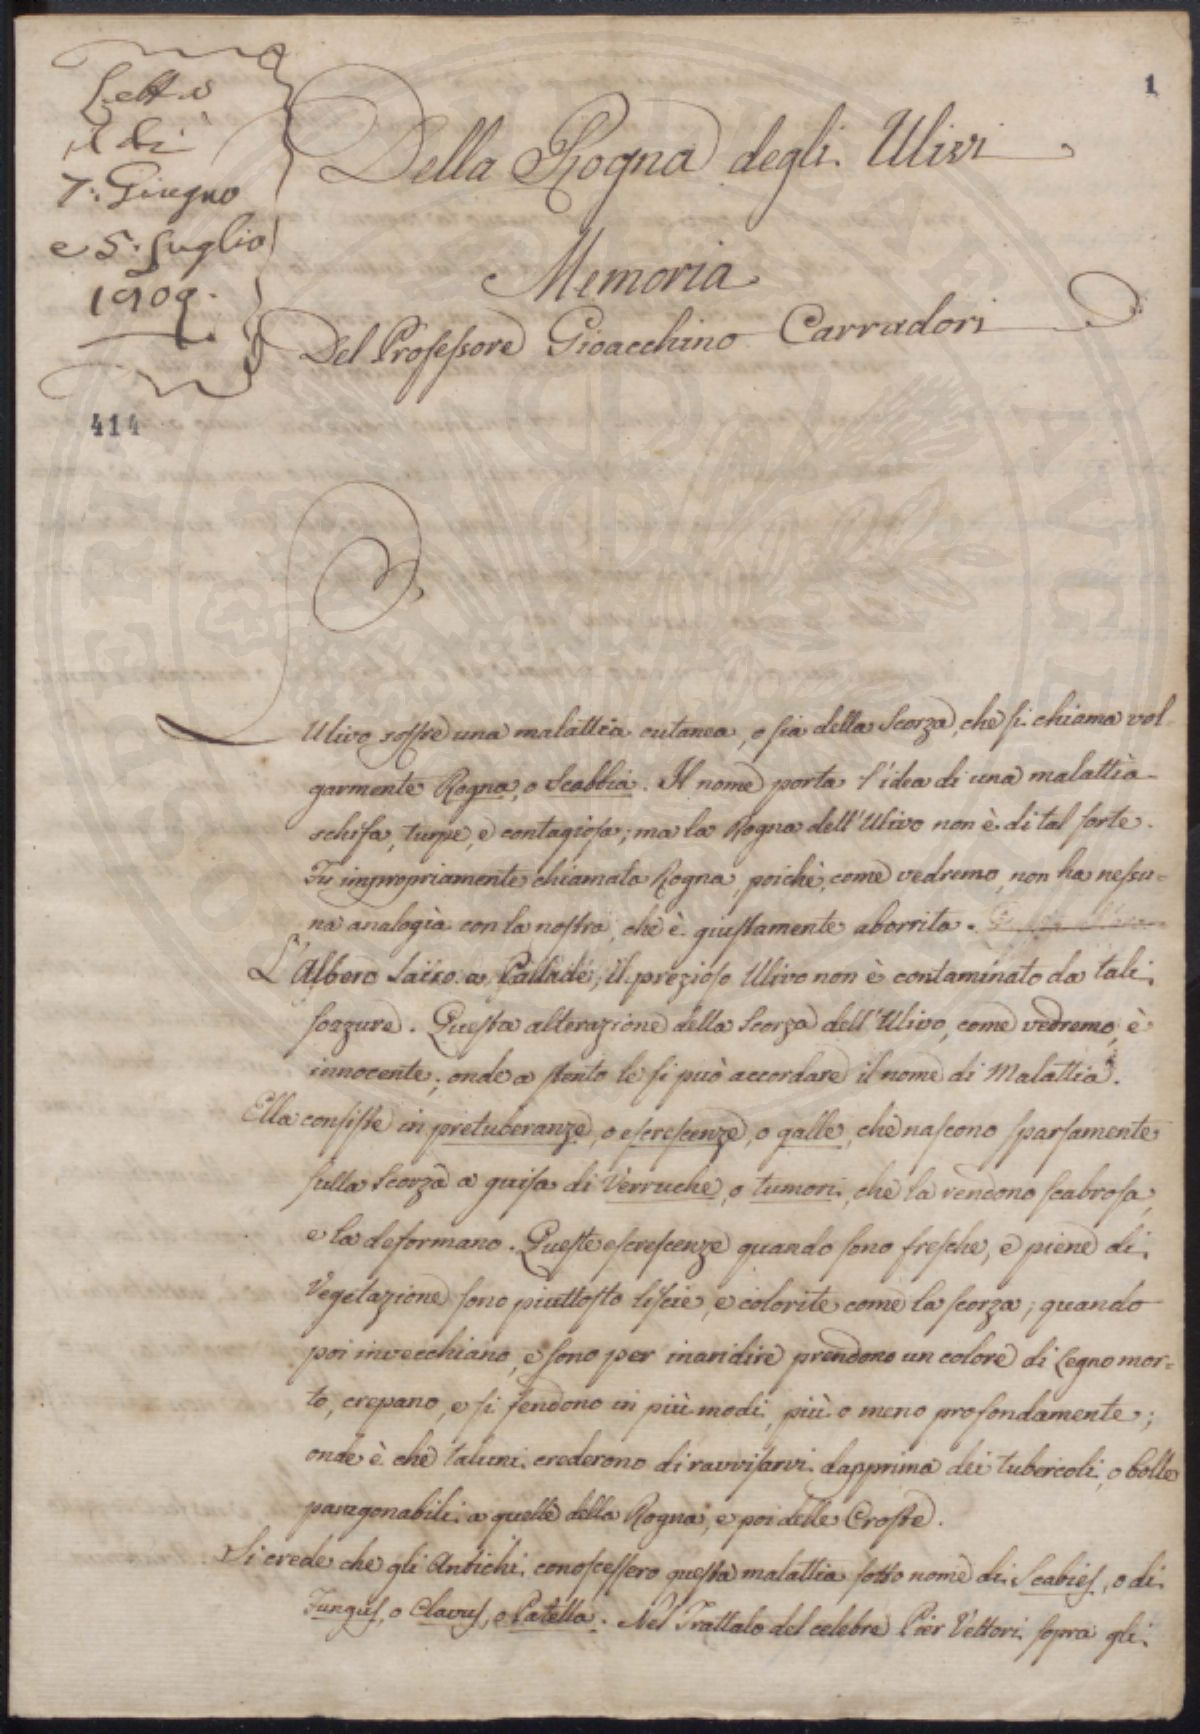 1
Letta
il dì
7. Giugno
e 5. Luglio
1809.
414
Della Rogna degli Ulivi
Memoria
Del Professore Gioacchino Carradori
L'Ulivo soffre una malattia cutanea, o sia della Scorza, che si chiama vol-
garmente Rogna, o Scabbia. Il nome porta l'idea di una malattia
schifa, turpe, e contagiosa; ma la Rogna dell'Ulivo non è di tal sorte.
Fu impropriamente chiamata Rogna, poichè, come vedremo, non ha nessu=
na analogia con la nostra, che è giustamente aborrita.
L'Albero sacro a Pallade, il prezioso Ulivo non è contaminato da tali
sozzure. Questa alterazione della Scorza dell'Ulivo, come vedremo, è
innocente; onde a stento le si può accordare il nome di Malattia.
Ella consiste in protuberanze, o escrescenze, o galle, che nascono sparsamente
sulla Scorza a guisa di Verruche, o tumori, che la rendono scabrosa,
e la deformano. Queste escrescenze quando sono fresche, e piene di
Vegetazione sono piuttosto liscie, e colorite come la scorza; quando
poi invecchiano, e sono per inaridire prendono un colore di Legno mor=
to, crepano, e si fendono in più modi, più o meno profondamente;
onde è che taluni crederono di ravvisarvi dapprima dei tubercoli, o bolle
paragonabili a quelle della Rogna, e poi delle Croste.
Si crede che gli Antichi conoscessero questa malattia sotto nome di Scabies, o di
Fungus, o Clavus, o Patella. Nel Trattato del celebre Pier Vettori sopra gli